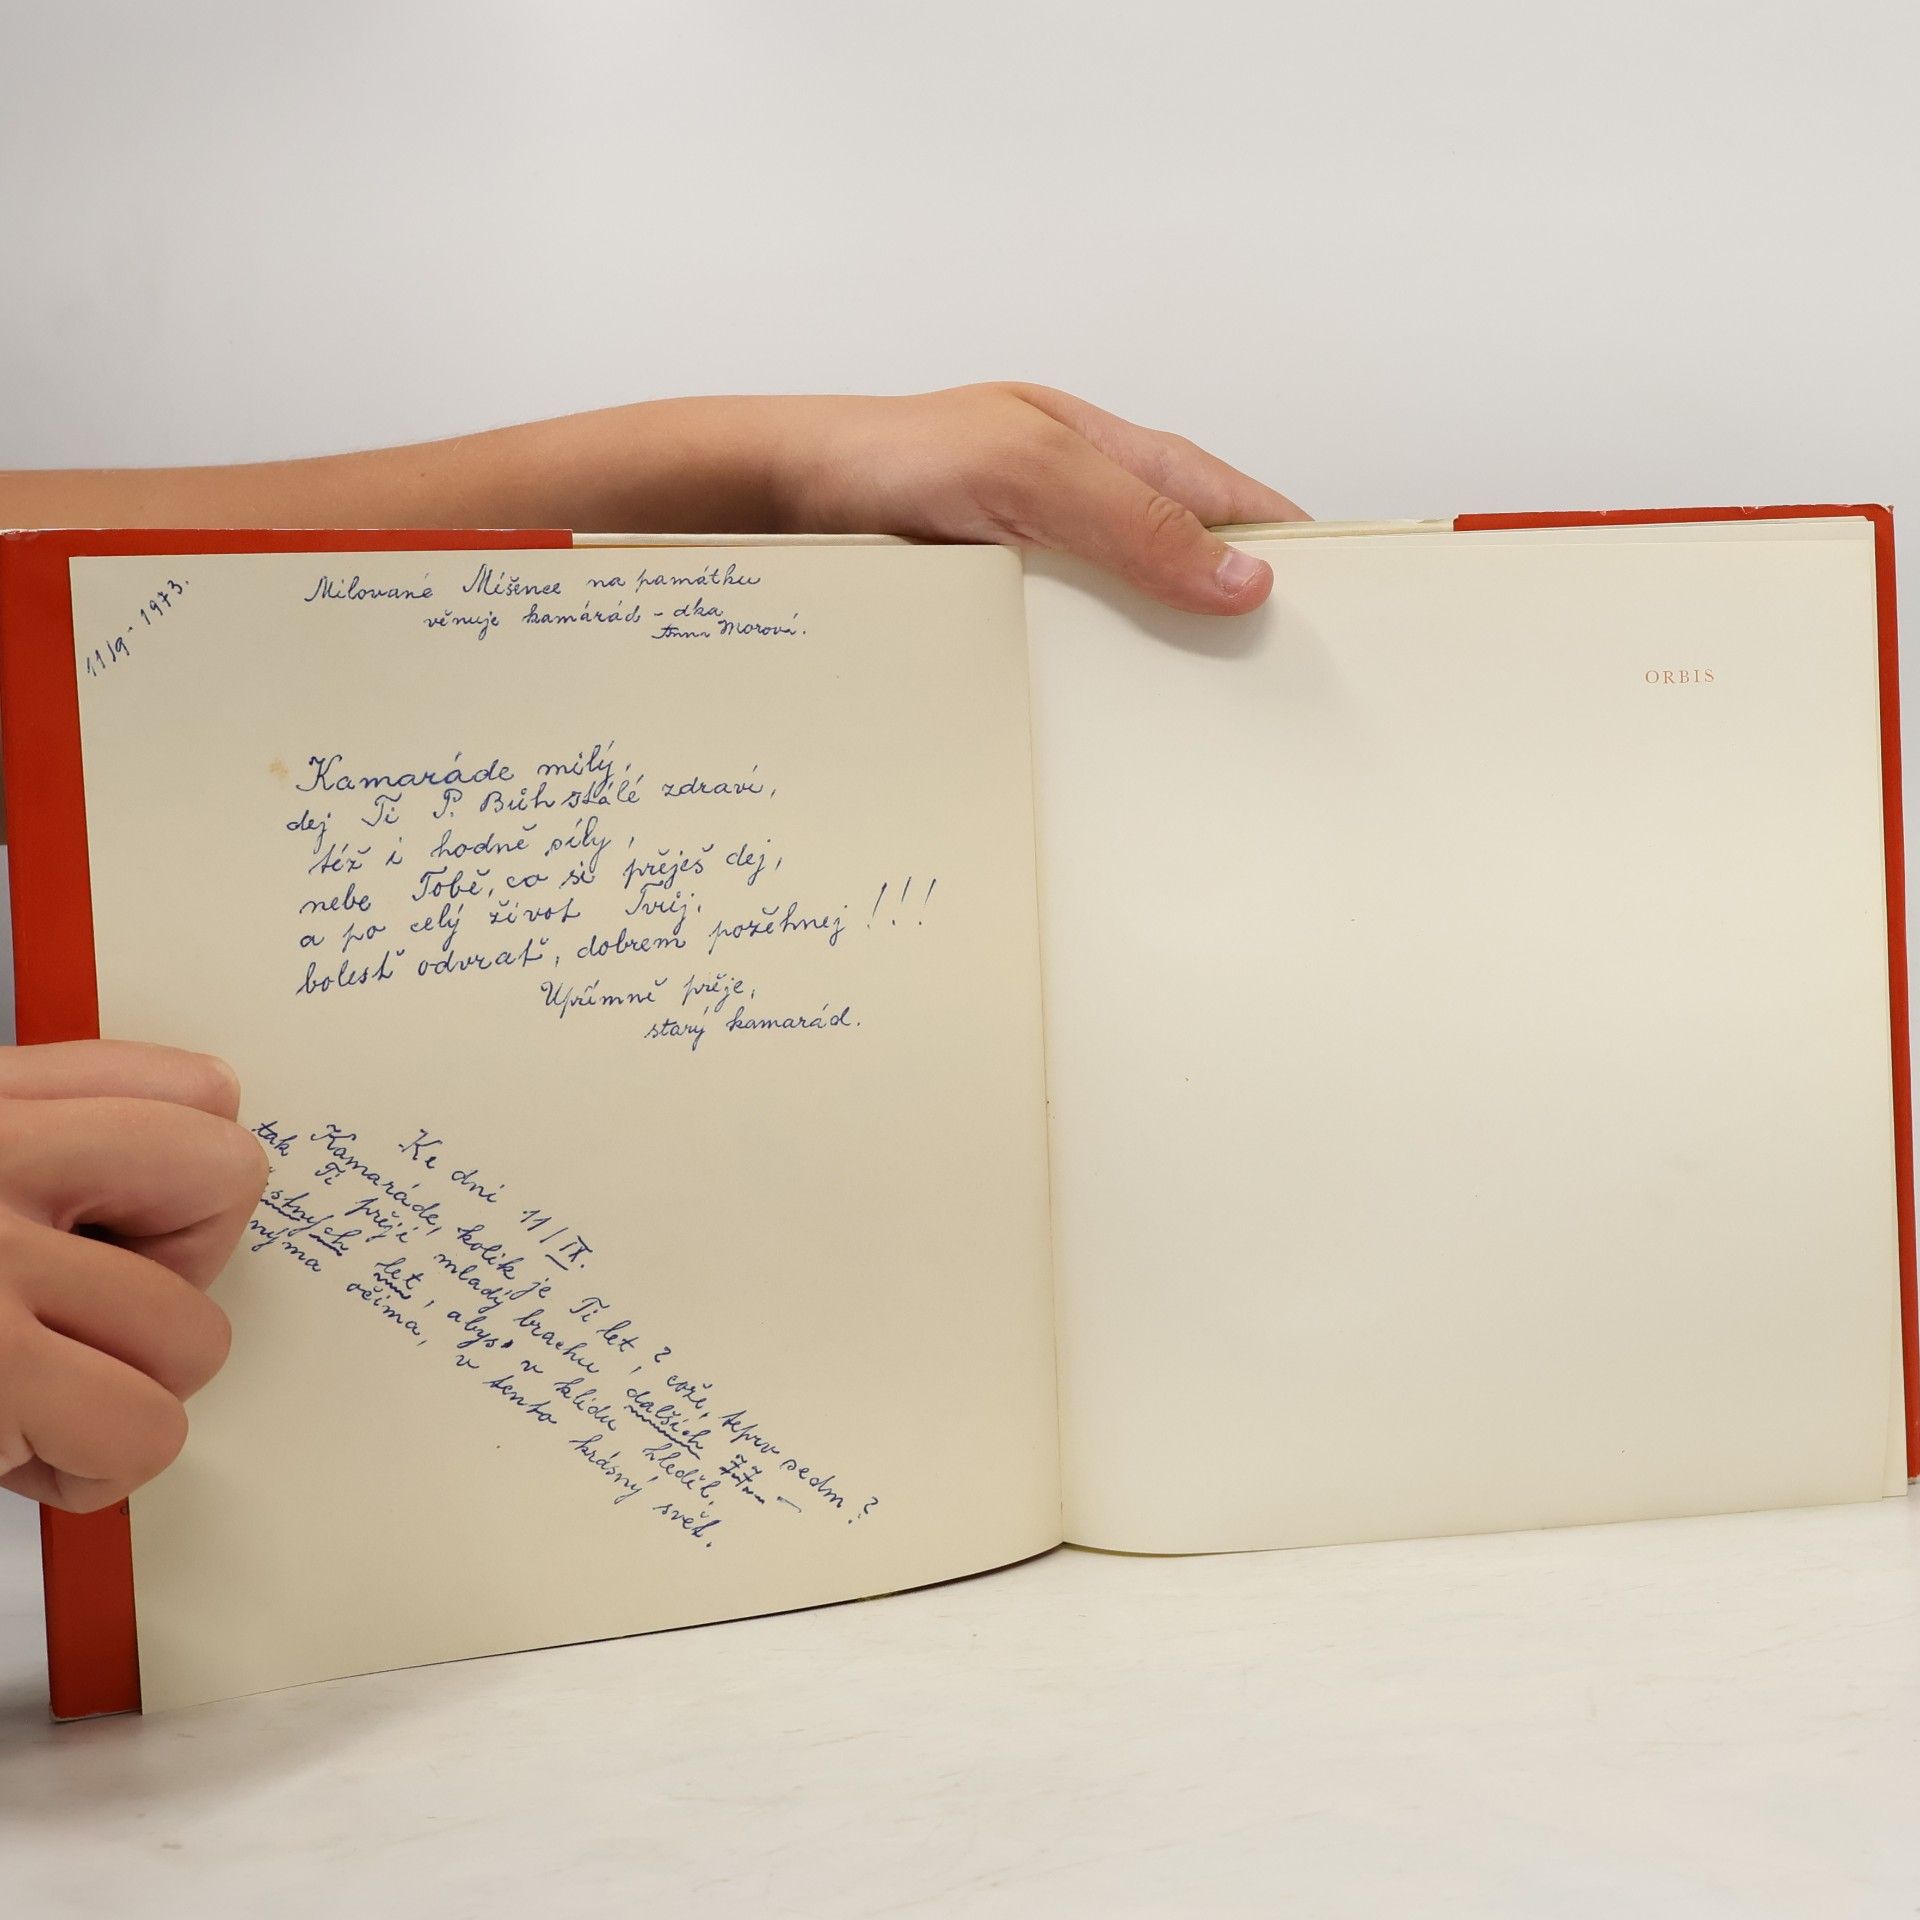 11/9 - 1973.
Milované Míšence na památku
věnuje kamárád - dka
Anna Morová.
Kamaráde milý,
dej Ti P. Bůh stálé zdraví,
též i hodně síly,
nebe Tobě, co si přeješ dej,
a po celý život Tvůj,
bolest odvrať, dobrem požehnej!!!
Upřímně přeje,
starý kamarád.
Ke dni 11/IX.
Kamaráde, kolik je Ti let, ? cože, teprv sedm?
tak Ti přeji mladý brachu, dalších 77 -
stných let, abys v klidu hleděl,
nýma očima, v tento krásný svět.
ORBIS